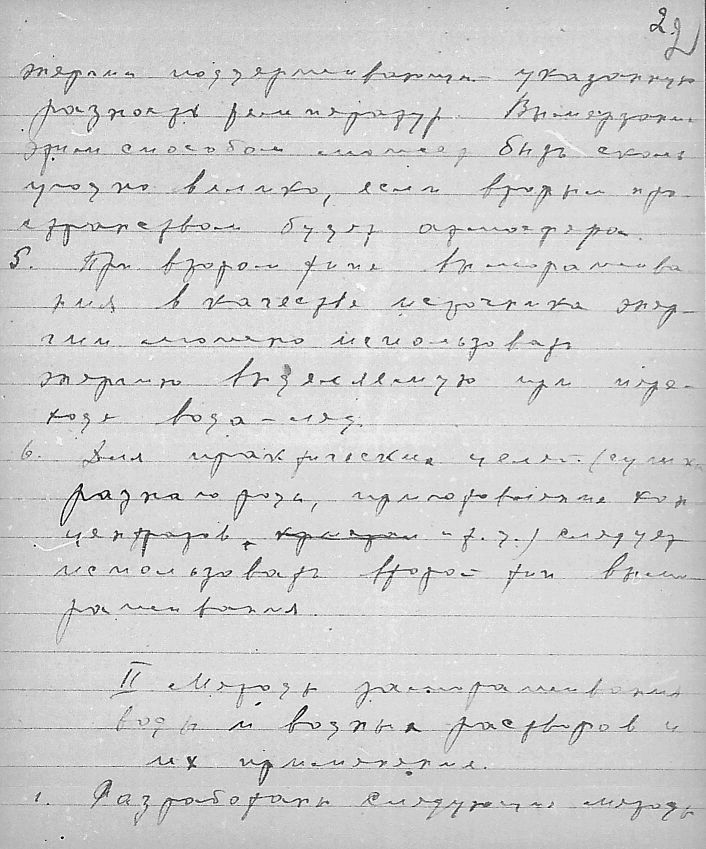 29
энергии поддерживающий указанную
разность температур. Вымерзание
этим способом может быть сколь
угодно велико, если вторым про-
странством будет атмосфера.
5. При втором типе выморажива
ния в качестве источника энер-
гии можно использовать
энергию выделяемую при пере-
ходе вода-лед.
6. Для практических целей (сушки
разного рода, приготовление кон
центратов, и т.д.) следует
использовать второй тип вымо-
раживания.
II Методы замораживания
воды и водных растворов и
их применение.
1. Разработаны следующие методы